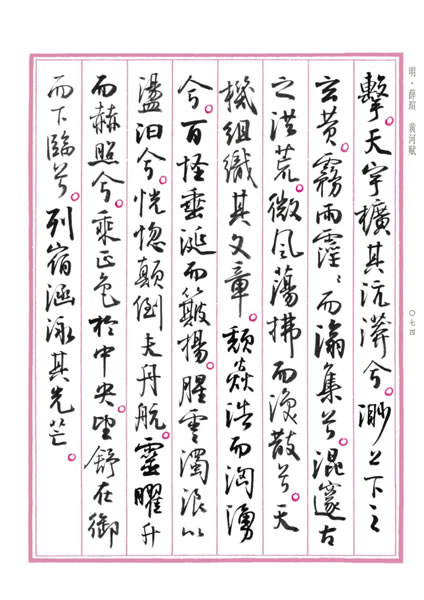 明·薛瑄 黄河赋
〇七四
擊。天宇曠其沆漭兮。渺上下之
玄黄。霧雨霪〻而滃集兮。混邃古
之洪荒。微風蕩拂而渙散兮。天
機組織其文章。頽焱浩而洶湧
兮。百怪垂涎而簸揚。腥雲濁浪以
盪汩兮。恍惚顛倒夫舟航。靈曜升
而赫照兮。乘正色於中央。望舒在御
而下臨兮。列宿涵泳其光芒。